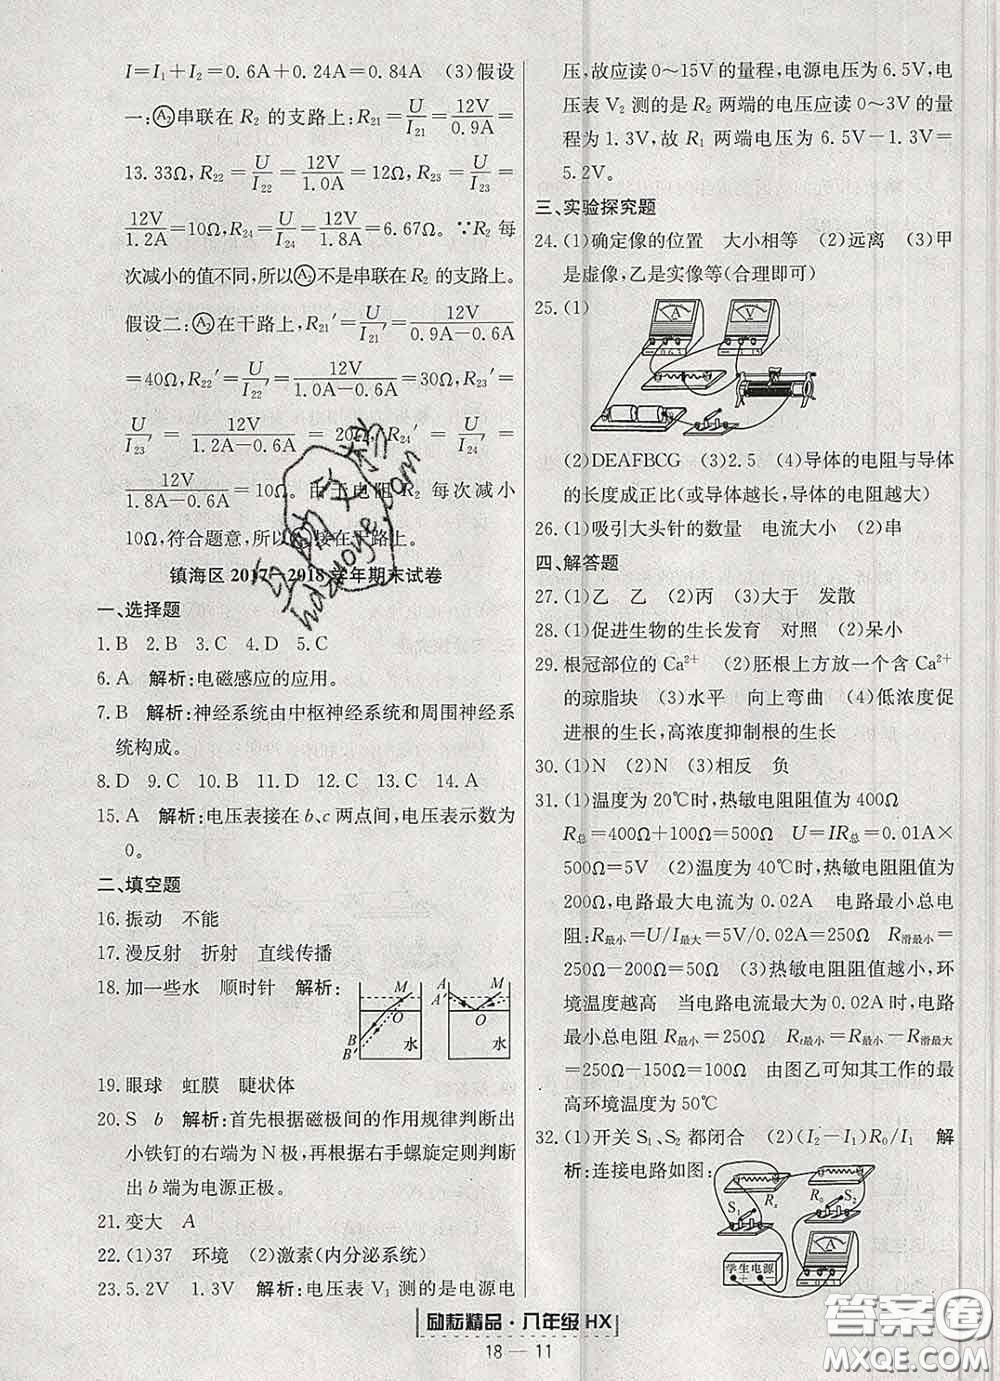 I＝I₁＋I₂＝0.6A＋0.24A＝0.84A　(3)假设
一:Ⓐ₂串联在 R₂ 的支路上:R₂₁＝U/I₂₁＝12V/0.9A＝
13.33Ω,R₂₂＝U/I₂₂＝12V/1.0A＝12Ω,R₂₃＝U/I₂₃＝
12V/1.2A＝10Ω,R₂₄＝U/I₂₄＝12V/1.8A＝6.67Ω。∵R₂ 每
次减小的值不同,所以Ⓐ₂不是串联在 R₂ 的支路上。
假设二:Ⓐ₂在干路上,R₂₁′＝U/I₂₁′＝12V/(0.9A－0.6A)
＝40Ω,R₂₂′＝U/I₂₂′＝12V/(1.0A－0.6A)＝30Ω,R₂₃′＝
U/I₂₃′＝12V/(1.2A－0.6A)＝20Ω,R₂₄′＝U/I₂₄′＝
12V/(1.8A－0.6A)＝10Ω。由于电阻 R₂ 每次减小
10Ω,符合题意,所以Ⓐ₂接在干路上。
镇海区 2017—2018 学年期末试卷
一、选择题
1. B　2. B　3. C　4. D　5. C
6. A　解析:电磁感应的应用。
7. B　解析:神经系统由中枢神经系统和周围神经系
统构成。
8. D　9. C　10. B　11. D　12. C　13. C　14. A
15. A　解析:电压表接在 b、c 两点间,电压表示数为
0。
二、填空题
16. 振动　不能
17. 漫反射　折射　直线传播
18. 加一些水　顺时针　解析:
M A M
A′
O O
B
B′ 水 水
19. 眼球　虹膜　睫状体
20. S　b　解析:首先根据磁极间的作用规律判断出
小铁钉的右端为 N 极,再根据右手螺旋定则判断
出 b 端为电源正极。
21. 变大　A
22. (1)37　环境　(2)激素(内分泌系统)
23. 5.2V　1.3V　解析:电压表 V₁ 测的是电源电
压,故应读 0～15V 的量程,电源电压为 6.5V,电
压表 V₂ 测的是 R₂ 两端的电压应读 0～3V 的量
程为 1.3V,故 R₁ 两端电压为 6.5V－1.3V＝
5.2V。
三、实验探究题
24. (1)确定像的位置　大小相等　(2)远离　(3)甲
是虚像,乙是实像等(合理即可)
25. (1)
A V
(2)DEAFBCG　(3)2.5　(4)导体的电阻与导体
的长度成正比(或导体越长,导体的电阻越大)
26. (1)吸引大头针的数量　电流大小　(2)串
四、解答题
27. (1)乙　乙　(2)丙　(3)大于　发散
28. (1)促进生物的生长发育　对照　(2)呆小
29. 根冠部位的 Ca²⁺　(2)胚根上方放一个含 Ca²⁺
的琼脂块　(3)水平　向上弯曲　(4)低浓度促
进根的生长,高浓度抑制根的生长
30. (1)N　(2)N　(3)相反　负
31. (1)温度为 20℃时,热敏电阻阻值为 400Ω
R总＝400Ω＋100Ω＝500Ω　U＝IR总＝0.01A×
500Ω＝5V　(2)温度为 40℃时,热敏电阻阻值为
200Ω,电路最大电流为 0.02A　电路最小总电
阻:R最小＝U/I最大＝5V/0.02A＝250Ω　R滑最小
＝250Ω－200Ω＝50Ω　(3)热敏电阻阻值越小,环
境温度越高　当电路电流最大为 0.02A 时,电路
最小总电阻 R最小＝250Ω　Rt最小＝R最小－R滑最大
＝250Ω－150Ω＝100Ω　由图乙可知其工作的最
高环境温度为 50℃
32. (1)开关 S₁、S₂ 都闭合　(2)(I₂－I₁)R₀/I₁　解
析:连接电路如图:
Rₓ R₀ S₂
S₁
A
学生电源
励耘精品·八年级 HX
18 — 11
答案圈
MXQE.COM